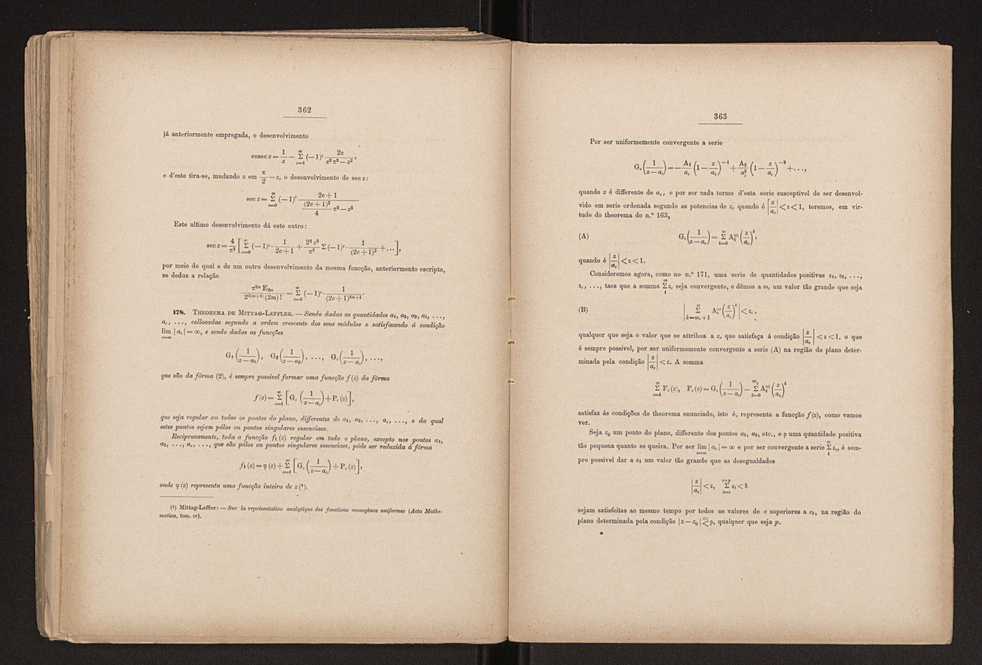 362
já anteriormente empregada, o desenvolvimento
cosec z = 1/z − Σ_{v=1}^{∞} (−1)^v 2z / (v²π² − z²),
e d'este tira-se, mudando z em π/2 − z, o desenvolvimento de sec z:
sec z = Σ_{v=0}^{∞} (−1)^v (2v+1) / ((2v+1)²/4 π² − z²)
Este ultimo desenvolvimento dá este outro:
sec z = 4/π² [ Σ_{v=0}^{∞} (−1)^v · 1/(2v+1) + 2² z²/π² Σ (−1)^v · 1/(2v+1)³ + ... ],
por meio do qual e de um outro desenvolvimento da mesma funcção, anteriormente escripto,
se deduz a relação
= Σ_{v=0}^{∞} (−1)^v · 1/(2v+1)^{2m+1}.
178. Theorema de Mittag-Leffler. — Sendo dadas as quantidades a₁, a₂, a₃, a₄, ...,
a_v, ..., collocadas segundo a ordem crescente dos seus módulos e satisfazendo á condição
lim_{v=∞} |a_v| = ∞, e sendo dadas as funcções
G₁(1/(z−a₁)), G₂(1/(z−a₂)), ...., G_v(1/(z−a_v)), ....,
que são da fórma (2), é sempre possivel formar uma funcção f(z) da fórma
f(z) = Σ_{v=1}^{∞} [ G_v (1/(z−a_v)) + P_v(z) ],
que seja regular em todos os pontos do plano, differentes de a₁, a₂, ..., a_v, ..., e da qual
estes pontos sejam pólos ou pontos singulares essenciaes.
Reciprocamente, toda a funcção f₁(z) regular em todo o plano, excepto nos pontos a₁,
a₂, ..., a_v, ..., que são pólos ou pontos singulares essenciaes, póde ser reduzida á fórma
f₁(z) = η(z) + Σ_{v=1}^{∞} [ G_v (1/(z−a_v)) + P_v(z) ],
onde η(z) representa uma funcção inteira de z (¹).
(¹) Mittag-Leffler: — Sur la représentation analytique des fonctions monogènes uniformes (Acta Mathe-
matica, tom. IV).
363
Por ser uniformemente convergente a serie
G_v(1/(z−a_v)) = − A₁/a_v (1 − z/a_v)^{−1} + A₂/a_v² (1 − z/a_v)^{−2} + ...,
quando z é differente de a_v, e por ser cada termo d'esta serie susceptivel de ser desenvol-
vido em serie ordenada segundo as potencias de z, quando é |z/a_v| < ε < 1, teremos, em vir-
tude do theorema do n.º 163,
(A) G_v(1/(z−a_v)) = Σ_{k=0}^{∞} A_k^{(v)} (z/a_v)^k,
quando é |z/a_v| < ε < 1.
Consideremos agora, como no n.º 171, uma serie de quantidades positivas ε₁, ε₂, ...,
ε_v, ..., taes que a somma Σ_1^∞ ε_v seja convergente, e dêmos a m_v um valor tão grande que seja
(B) | Σ_{k=m_v+1}^{∞} A_k^{(v)} (z/a_v)^k | < ε_v,
qualquer que seja o valor que se attribua a z, que satisfaça á condição |z/a_v| < ε < 1, o que
é sempre possivel, por ser uniformemente convergente a serie (A) na região do plano deter-
minada pela condição |z/a_v| < ε. A somma
Σ_1^∞ F_v(z), F_v(z) = G_v(1/(z−a_v)) − Σ_{k=0}^{m_v} A_k^{(v)} (z/a_v)^k
satisfaz ás condições do theorema enunciado, isto é, representa a funcção f(z), como vamos
ver.
Seja z₀ um ponto do plano, differente dos pontos a₁, a₂, etc., e ρ uma quantidade positiva
tão pequena quanto se queira. Por ser lim_{v=∞} |a_v| = ∞ e por ser convergente a serie Σ_1^∞ ε_v, é sem-
pre possivel dar a v₁ um valor tão grande que as desegualdades
|z/a_v| < ε, Σ_{i=v}^{v+p} ε_i < δ
sejam satisfeitas ao mesmo tempo por todos os valores de v superiores a v₁, na região do
plano determinada pela condição |z − z₀| ≦ ρ, qualquer que seja p.
*